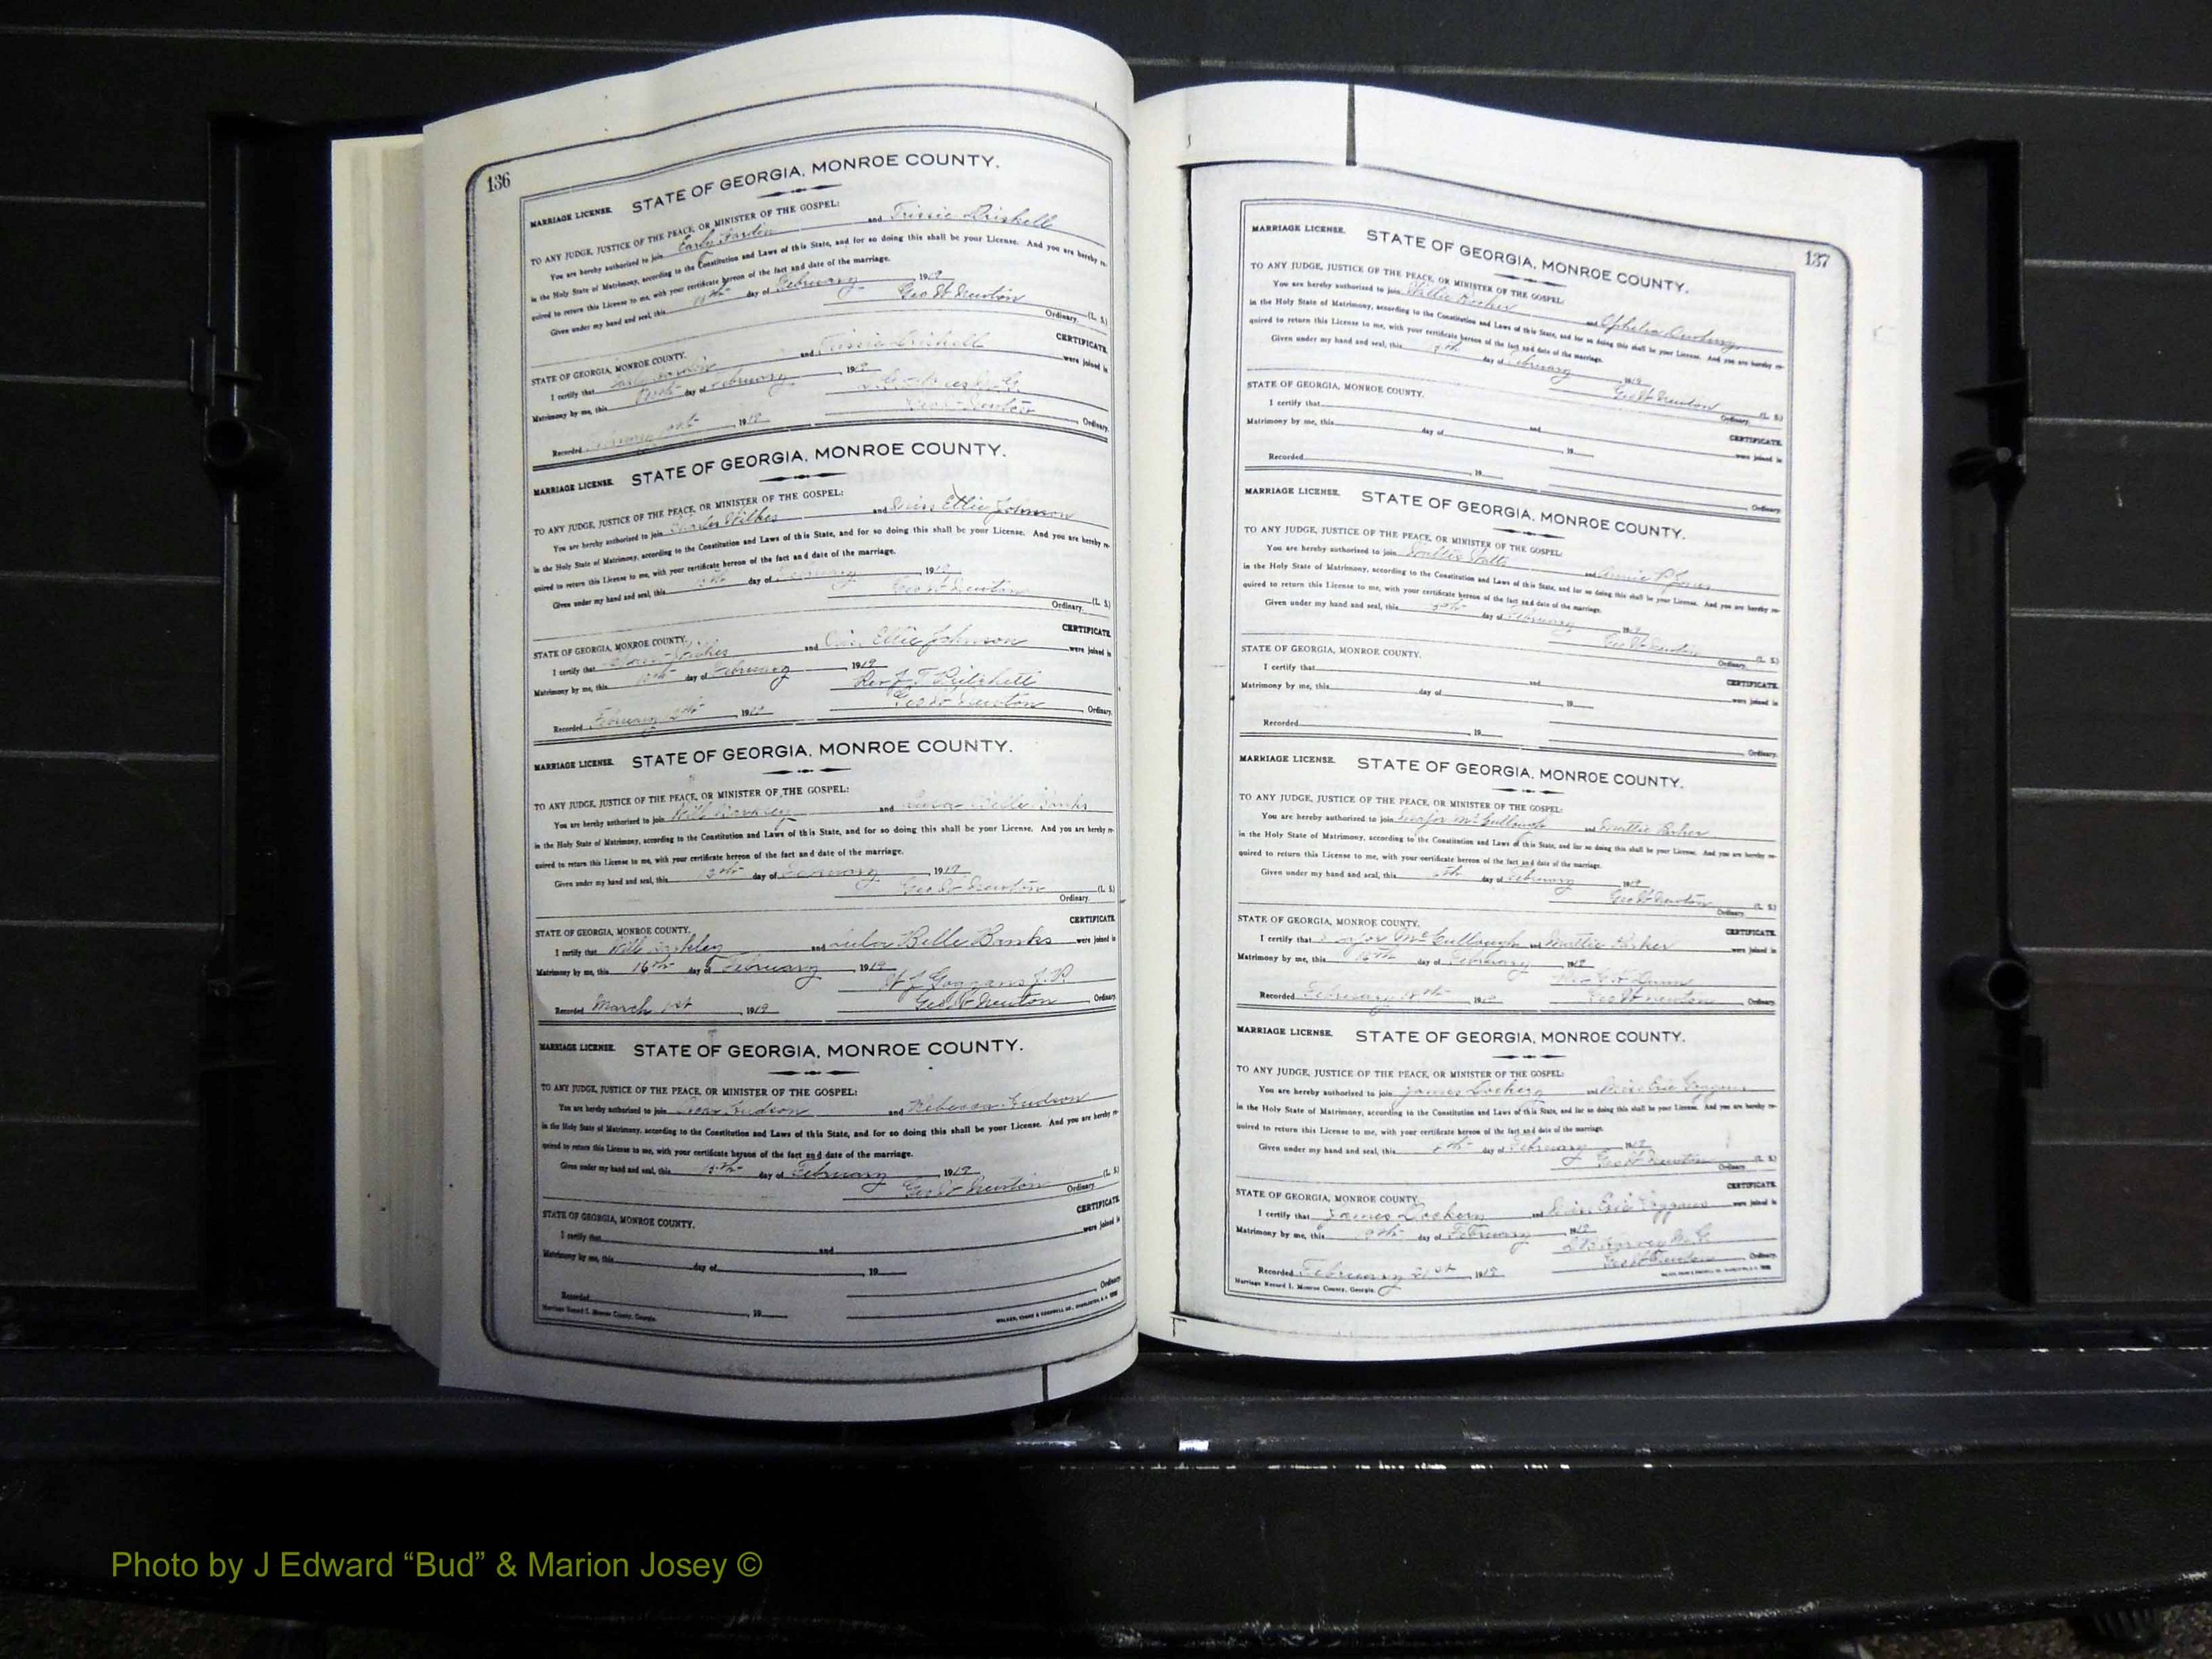 136
MARRIAGE LICENSE. STATE OF GEORGIA, MONROE COUNTY.
TO ANY JUDGE, JUSTICE OF THE PEACE, OR MINISTER OF THE GOSPEL:
You are hereby authorized to join Early and Driskell
in the Holy State of Matrimony, according to the Constitution and Laws of this State, and for so doing this shall be your License. And you are hereby re-
quired to return this License to me, with your certificate hereon of the fact and date of the marriage.
Given under my hand and seal, this day of February 1919
Geo W Newton (L. S.)
Ordinary.
STATE OF GEORGIA, MONROE COUNTY. CERTIFICATE.
I certify that and Driskell were joined in
Matrimony by me, this day of February, 1919
Recorded 1919 Geo W Newton Ordinary.
MARRIAGE LICENSE. STATE OF GEORGIA, MONROE COUNTY.
TO ANY JUDGE, JUSTICE OF THE PEACE, OR MINISTER OF THE GOSPEL:
You are hereby authorized to join Charles Wilkes and Miss Ellie Johnson
in the Holy State of Matrimony, according to the Constitution and Laws of this State, and for so doing this shall be your License. And you are hereby re-
quired to return this License to me, with your certificate hereon of the fact and date of the marriage.
Given under my hand and seal, this day of 1919
Geo W Newton (L. S.)
Ordinary.
STATE OF GEORGIA, MONROE COUNTY. CERTIFICATE.
I certify that and Miss Ellie Johnson were joined in
Matrimony by me, this day of February, 1919
Rev J. T. Pritchett
Recorded February 1919 Geo W Newton Ordinary.
MARRIAGE LICENSE. STATE OF GEORGIA, MONROE COUNTY.
TO ANY JUDGE, JUSTICE OF THE PEACE, OR MINISTER OF THE GOSPEL:
You are hereby authorized to join Will and Lula Belle Banks
in the Holy State of Matrimony, according to the Constitution and Laws of this State, and for so doing this shall be your License. And you are hereby re-
quired to return this License to me, with your certificate hereon of the fact and date of the marriage.
Given under my hand and seal, this day of 1919
Geo W Newton (L. S.)
Ordinary.
STATE OF GEORGIA, MONROE COUNTY. CERTIFICATE.
I certify that Will and Lula Belle Banks were joined in
Matrimony by me, this 16th day of February, 1919
W J Goggans J.P.
Recorded March 1st, 1919 Geo W Newton Ordinary.
MARRIAGE LICENSE. STATE OF GEORGIA, MONROE COUNTY.
TO ANY JUDGE, JUSTICE OF THE PEACE, OR MINISTER OF THE GOSPEL:
You are hereby authorized to join Hudson and Rebecca Hudson
in the Holy State of Matrimony, according to the Constitution and Laws of this State, and for so doing this shall be your License. And you are hereby re-
quired to return this License to me, with your certificate hereon of the fact and date of the marriage.
Given under my hand and seal, this 15th day of February 1919
Geo W Newton (L. S.)
Ordinary.
STATE OF GEORGIA, MONROE COUNTY. CERTIFICATE.
I certify that and were joined in
Matrimony by me, this day of, 19
Recorded, 19 Ordinary.
Marriage Record I. Monroe County, Georgia.
137
MARRIAGE LICENSE. STATE OF GEORGIA, MONROE COUNTY.
TO ANY JUDGE, JUSTICE OF THE PEACE, OR MINISTER OF THE GOSPEL:
You are hereby authorized to join Willie and Ophelia
in the Holy State of Matrimony, according to the Constitution and Laws of this State, and for so doing this shall be your License. And you are hereby re-
quired to return this License to me, with your certificate hereon of the fact and date of the marriage.
Given under my hand and seal, this day of February 1919
Geo W Newton (L. S.)
Ordinary.
STATE OF GEORGIA, MONROE COUNTY. CERTIFICATE.
I certify that and were joined in
Matrimony by me, this day of, 19
Recorded, 19 Ordinary.
MARRIAGE LICENSE. STATE OF GEORGIA, MONROE COUNTY.
TO ANY JUDGE, JUSTICE OF THE PEACE, OR MINISTER OF THE GOSPEL:
You are hereby authorized to join and Annie
in the Holy State of Matrimony, according to the Constitution and Laws of this State, and for so doing this shall be your License. And you are hereby re-
quired to return this License to me, with your certificate hereon of the fact and date of the marriage.
Given under my hand and seal, this day of February 1919
Geo W Newton (L. S.)
Ordinary.
STATE OF GEORGIA, MONROE COUNTY. CERTIFICATE.
I certify that and were joined in
Matrimony by me, this day of, 19
Recorded, 19 Ordinary.
MARRIAGE LICENSE. STATE OF GEORGIA, MONROE COUNTY.
TO ANY JUDGE, JUSTICE OF THE PEACE, OR MINISTER OF THE GOSPEL:
You are hereby authorized to join Major McCullough and Mattie
in the Holy State of Matrimony, according to the Constitution and Laws of this State, and for so doing this shall be your License. And you are hereby re-
quired to return this License to me, with your certificate hereon of the fact and date of the marriage.
Given under my hand and seal, this day of February 1919
Geo W Newton (L. S.)
Ordinary.
STATE OF GEORGIA, MONROE COUNTY. CERTIFICATE.
I certify that Major McCullough and Mattie were joined in
Matrimony by me, this day of February 1919
Recorded February 1919 Geo W Newton Ordinary.
MARRIAGE LICENSE. STATE OF GEORGIA, MONROE COUNTY.
TO ANY JUDGE, JUSTICE OF THE PEACE, OR MINISTER OF THE GOSPEL:
You are hereby authorized to join James Dockery and Miss Evie Goggans
in the Holy State of Matrimony, according to the Constitution and Laws of this State, and for so doing this shall be your License. And you are hereby re-
quired to return this License to me, with your certificate hereon of the fact and date of the marriage.
Given under my hand and seal, this day of February 1919
Geo W Newton (L. S.)
Ordinary.
STATE OF GEORGIA, MONROE COUNTY. CERTIFICATE.
I certify that James Dockery and Miss Evie Goggans were joined in
Matrimony by me, this day of February 1919
Recorded February 21st, 1919 Geo W Newton Ordinary.
Marriage Record I. Monroe County, Georgia.
Photo by J Edward “Bud” & Marion Josey ©